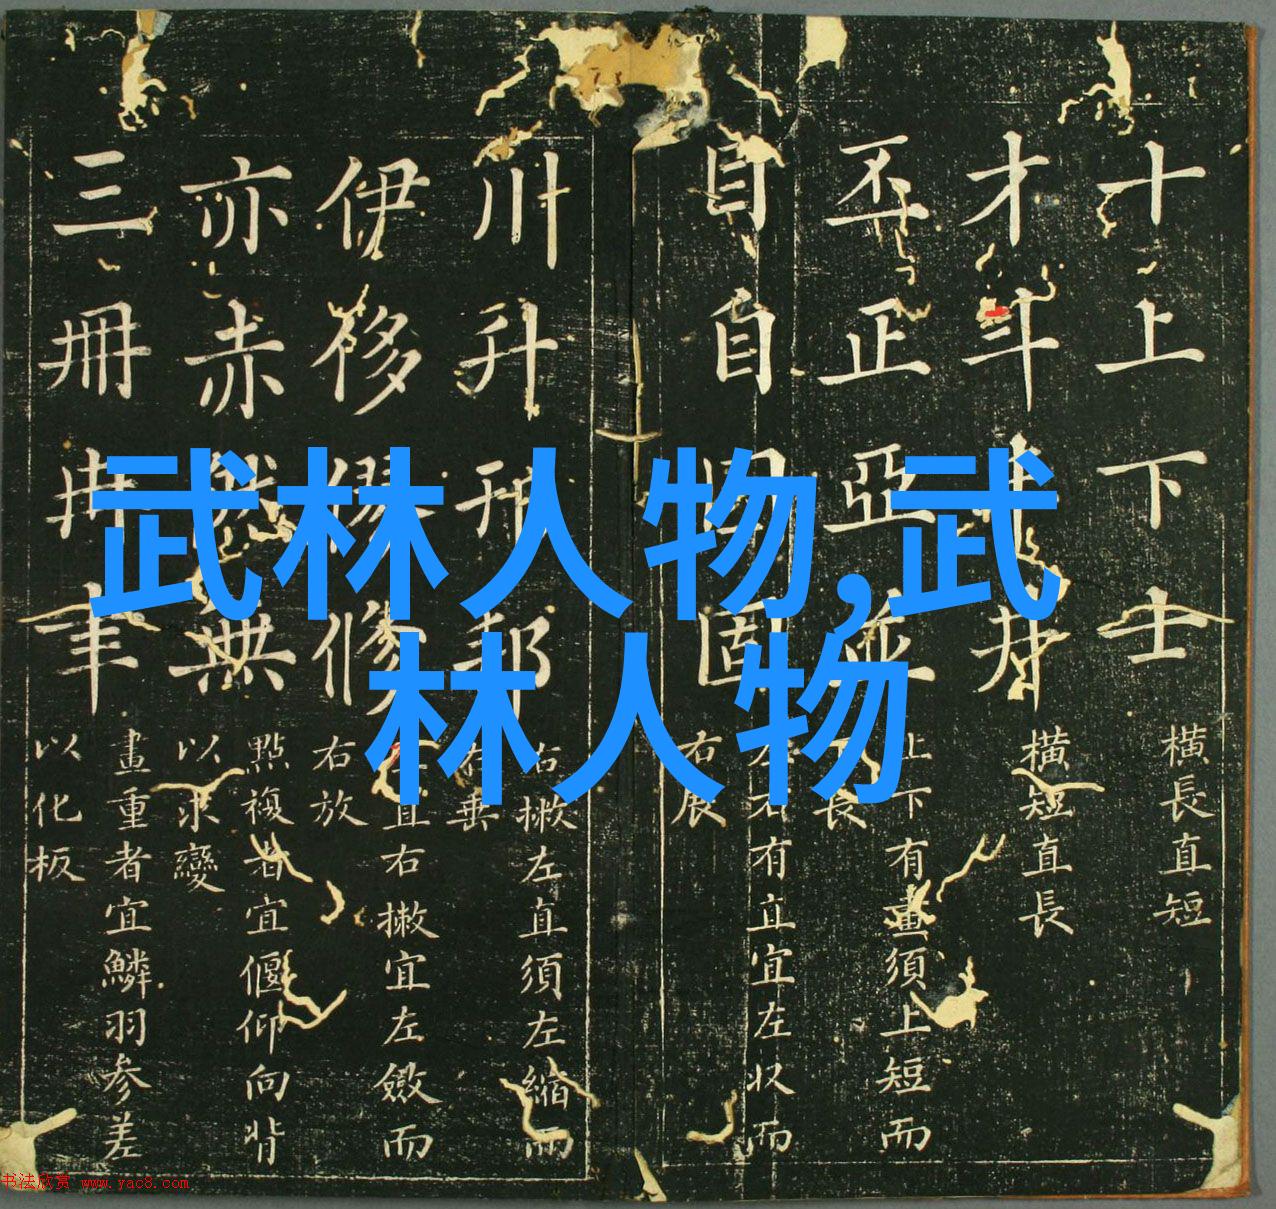 武林人物,武
林人物
十上下士
横長直短
才斗
横短直長
丕正亞並
上下有畫須上短而
下長
目自因固
左右有直宜左收而
右展
川升
右撇左直須左縮而
右垂
伊侈修
左直右撇宜左斂而
右放
亦赤然無
點複者宜偃仰向背
以求變
三冊冉
畫重者宜鱗羽参差
以化板
书法欣赏 www.yac8.com